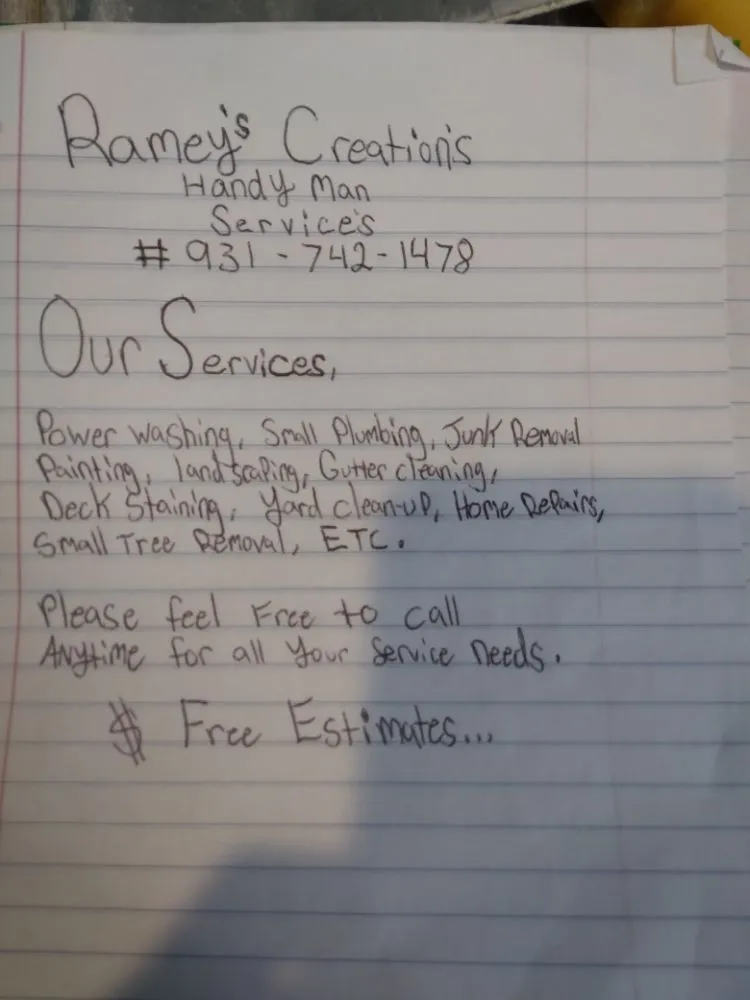 Ramey's Creation's
Handy Man
Service's
# 931-742-1478
Our Services,
Power washing, Small Plumbing, Junk Removal
Painting, landscaping, Gutter cleaning,
Deck Staining, Yard clean-up, Home Repairs,
Small Tree Removal, ETC.
Please feel Free to call
Anytime for all your Service needs.
$ Free Estimates...